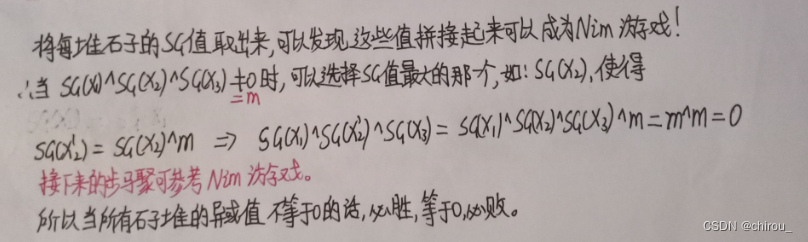 将每堆石子的SG值取出来,可以发现这些值拼接起来可以成为Nim游戏!
∴当 SG(X₁)^SG(X₂)^SG(X₃)≠0时,可以选择SG值最大的那个,如:SG(X₂),使得
=m
SG(X₂')=SG(X₂)^m ⇒ SG(X₁)^SG(X₂')^SG(X₃)=SG(X₁)^SG(X₂)^SG(X₃)^m=m^m=0
接下来的步骤可参考Nim游戏。
所以当所有石子堆的异或值不等于0的话,必胜,等于0,必败。
CSDN @chirou_